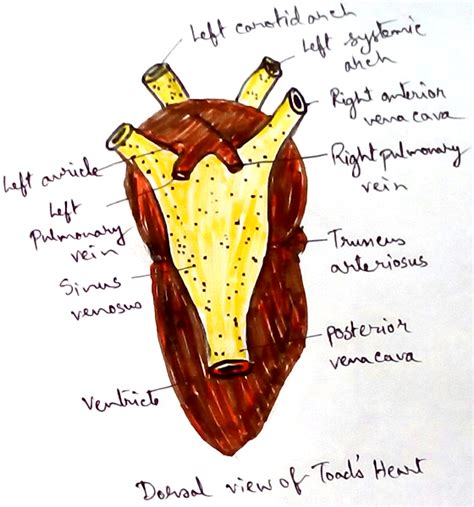 Left carotid arch
Left systemic
arch
Right anterior
vena cava
Left auricle
Right pulmonary
vein
Left
Pulmonary
vein
Truncus
arteriosus
Sinus
venosus
posterior
vena cava
ventricle
Dorsal view of Toad's Heart